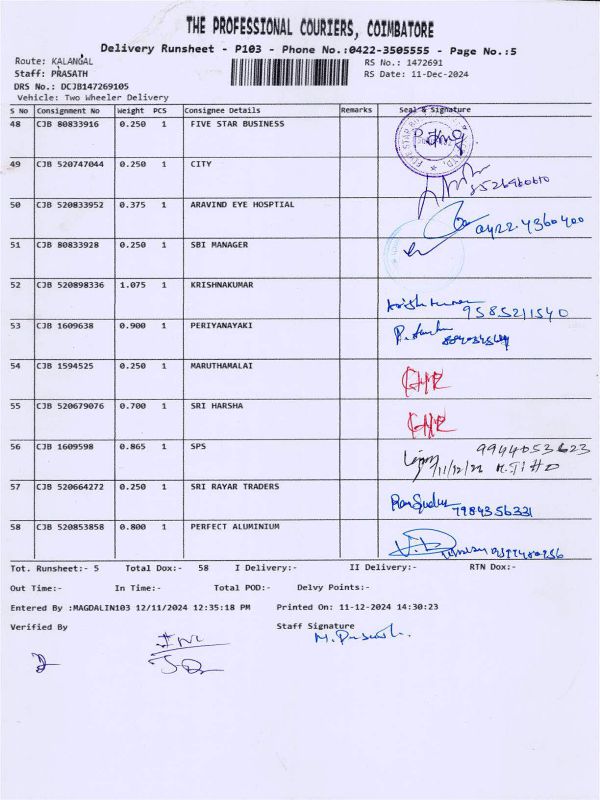 THE PROFESSIONAL COURIERS, COIMBATORE
Delivery Runsheet - P103 - Phone No.:0422-3505555 - Page No.:5
Route: KALANGAL
RS No.: 1472691
Staff: PRASATH
RS Date: 11-Dec-2024
DRS No.: DCJB147269105
Vehicle: Two Wheeler Delivery
S No Consignment No Weight PCS Consignee Details Remarks Seal & Signature
48 CJB 80833916 0.250 1 FIVE STAR BUSINESS
49 CJB 520747044 0.250 1 CITY
50 CJB 520833952 0.375 1 ARAVIND EYE HOSPTIAL 0422-4360400
51 CJB 80833928 0.250 1 SBI MANAGER
52 CJB 520898336 1.075 1 KRISHNAKUMAR 9585211540
53 CJB 1609638 0.900 1 PERIYANAYAKI
54 CJB 1594525 0.250 1 MARUTHAMALAI
55 CJB 520679076 0.700 1 SRI HARSHA
56 CJB 1609598 0.865 1 SPS 9944053623
57 CJB 520664272 0.250 1 SRI RAYAR TRADERS 7984356331
58 CJB 520853858 0.800 1 PERFECT ALUMINIUM
Tot. Runsheet:- 5 Total Dox:- 58 I Delivery:- II Delivery:- RTN Dox:-
Out Time:- In Time:- Total POD:- Delvy Points:-
Entered By :MAGDALIN103 12/11/2024 12:35:18 PM Printed On: 11-12-2024 14:30:23
Verified By Staff Signature